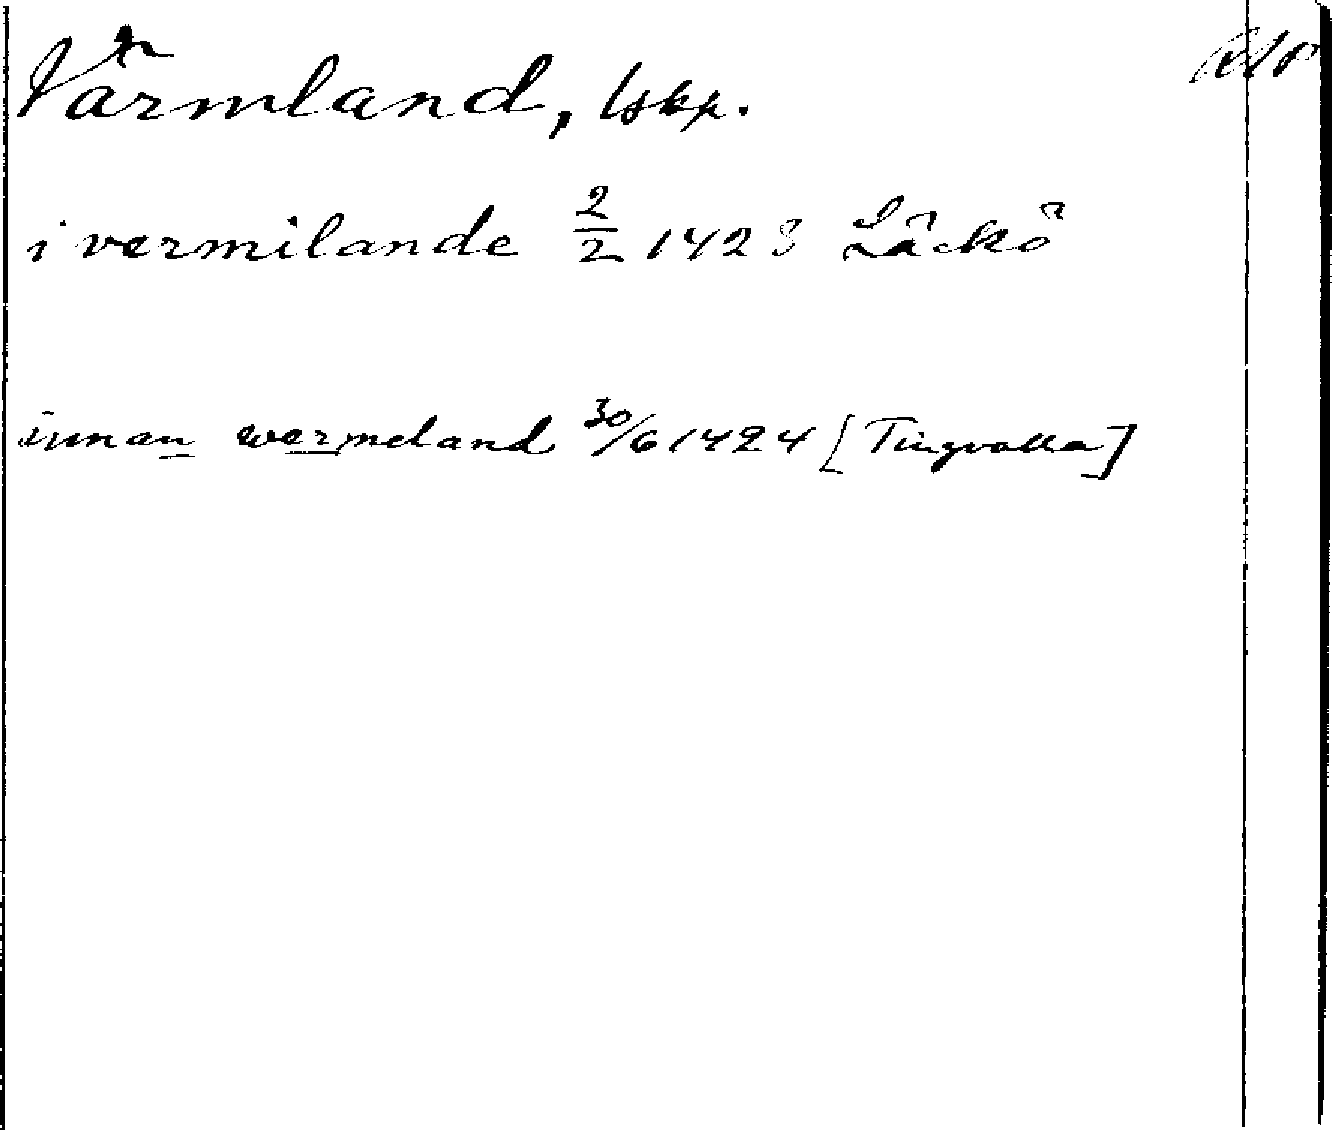 Värmland, lskp.
i vermilande 2/2 1423 Läckö
innan wermeland 30/6 1424 [Tingvalla]